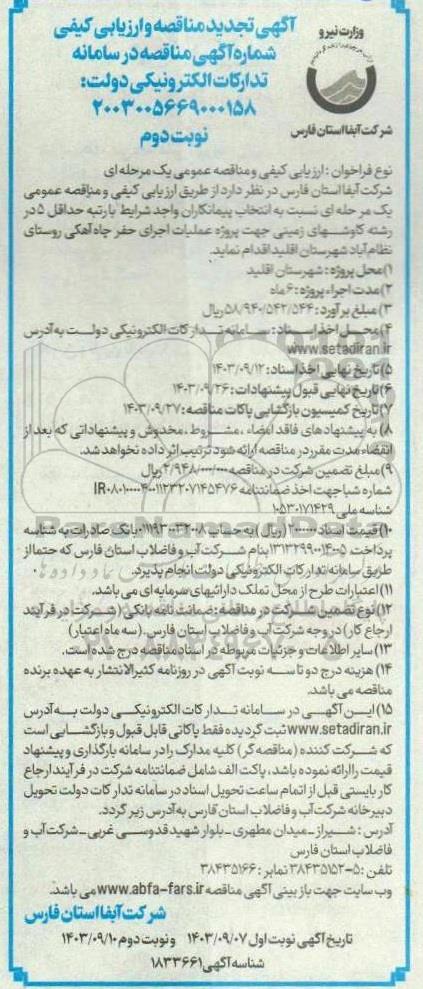 آگهی تجدید مناقصه و ارزیابی کیفی
شماره آگهی مناقصه در سامانه
تدارکات الکترونیکی دولت:
۲۰۰۳۰۰۵۶۶۹۰۰۰۱۵۸
نوبت دوم
وزارت نیرو
شرکت آبفا استان فارس
نوع فراخوان : ارزیابی کیفی و مناقصه عمومی یک مرحله ای
شرکت آبفا استان فارس در نظر دارد از طریق ارزیابی کیفی و مناقصه عمومی
یک مرحله ای نسبت به انتخاب پیمانکاران واجد شرایط با رتبه حداقل ۵ در
رشته کاوشهای زمینی جهت پروژه عملیات اجرای حفر چاه آهکی روستای
نظام آباد شهرستان اقلید اقدام نماید.
۱) محل پروژه : شهرستان اقلید
۲) مدت اجراء پروژه : ۶ ماه
۳) مبلغ برآورد : ۵۸/۹۴۰/۵۴۲/۵۴۴ ریال
۴) محل اخذ اسناد : سامانه تدارکات الکترونیکی دولت به آدرس
www.setadiran.ir
۵) تاریخ نهایی اخذ اسناد : ۱۴۰۳/۰۹/۱۲
۶) تاریخ نهایی قبول پیشنهادات : ۱۴۰۳/۰۹/۲۶
۷) تاریخ کمیسیون بازگشایی پاکات مناقصه : ۱۴۰۳/۰۹/۲۷
۸) به پیشنهادهای فاقد امضاء ، مشروط ، مخدوش و پیشنهاداتی که بعد از
انقضاء مدت مقرر در مناقصه ارائه شود ترتیب اثر داده نخواهد شد.
۹) مبلغ تضمین شرکت در مناقصه ۲/۹۴۸/۰۰۰/۰۰۰ ریال
شماره شبا جهت اخذ ضمانتنامه
شناسه ملی ۱۰۵۳۰۱۷۱۴۲۹
۱۰) قیمت اسناد (ریال) به حساب بانک صادرات به شناسه
پرداخت بنام شرکت آب و فاضلاب استان فارس که حتما از
طریق سامانه تدارکات الکترونیکی دولت انجام پذیرد.
۱۱) اعتبارات طرح از محل تملک دارائیهای سرمایه ای می باشد.
۱۲) نوع تضمین شرکت در مناقصه : ضمانت نامه بانکی (شرکت در فرآیند
ارجاع کار) در وجه شرکت آب و فاضلاب استان فارس. (سه ماه اعتبار)
۱۳) سایر اطلاعات و جزئیات مربوطه در اسناد مناقصه درج شده است.
۱۴) هزینه درج دو تا سه نوبت آگهی در روزنامه کثیرالانتشار به عهده برنده
مناقصه می باشد.
۱۵) این آگهی در سامانه تدارکات الکترونیکی دولت به آدرس
www.setadiran.ir ثبت گردیده فقط پاکاتی قابل قبول و بازگشایی است
که شرکت کننده (مناقصه گر) کلیه مدارک را در سامانه بارگذاری و پیشنهاد
قیمت را ارائه نموده باشد ، پاکت الف شامل ضمانتنامه شرکت در فرآیند ارجاع
کار بایستی قبل از اتمام ساعت تحویل اسناد در سامانه تدارکات دولت تحویل
دبیرخانه شرکت آب و فاضلاب استان فارس به آدرس زیر گردد.
آدرس : شیراز - میدان مطهری - بلوار شهید قدوسی غربی - شرکت آب و
فاضلاب استان فارس
تلفن : ۵-۳۸۴۳۵۱۵۲ نمابر : ۳۸۴۳۵۱۶۶
وب سایت جهت بازبینی آگهی مناقصه www.abfa-fars.ir می باشد.
شرکت آبفا استان فارس
تاریخ آگهی نوبت اول ۱۴۰۳/۰۹/۰۷ و نوبت دوم ۱۴۰۳/۰۹/۱۰
شناسه آگهی ۱۸۳۳۶۶۱